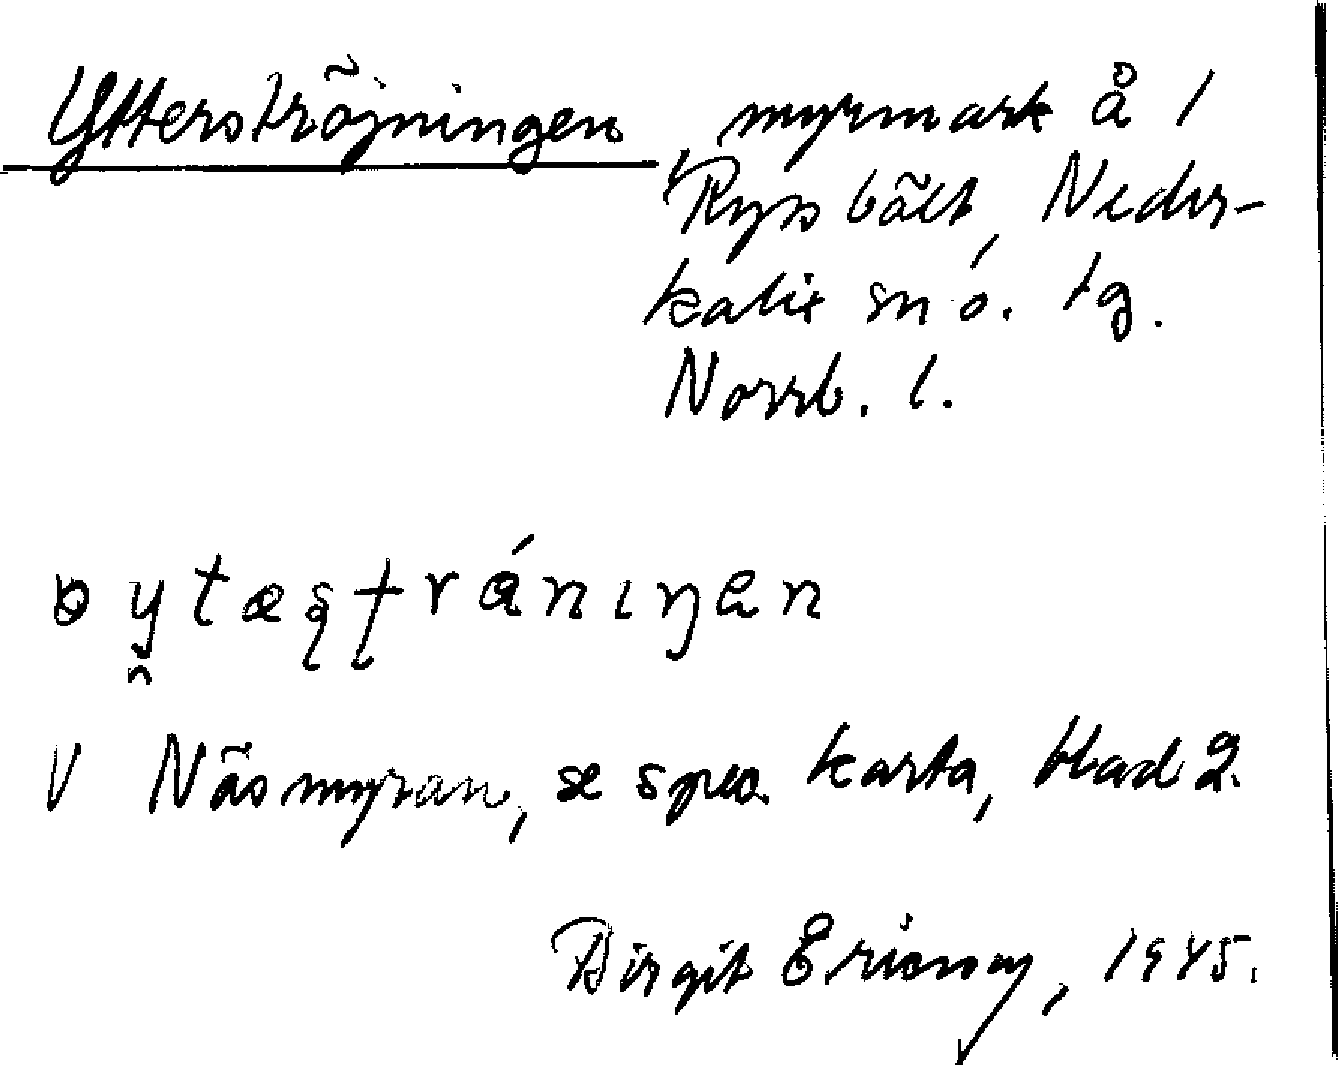 Ytterströjningen myrmark å 1
Rysbält, Neder-
kalix sn ö. tg.
Norrb. l.
V Näsmyran, se spec. karta, blad 2.
Birgit Ericson, 1945.